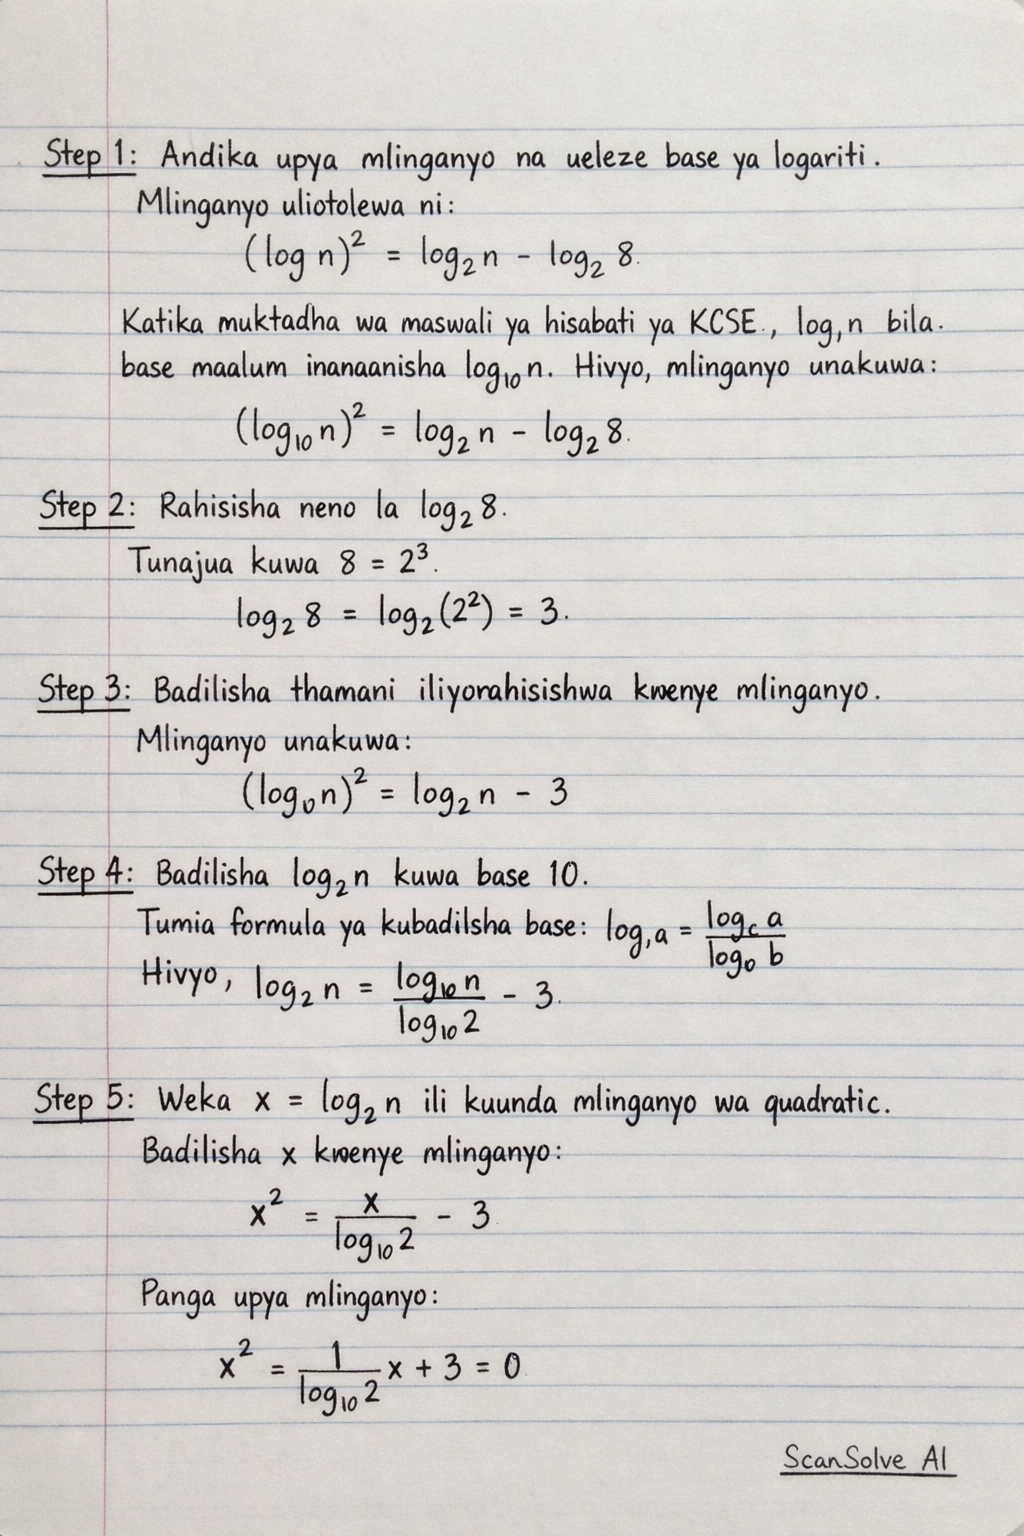 Step 1: Andika upya mlinganyo na ueleze base ya logariti.
Mlinganyo uliotolewa ni:
(log n)² = log₂ n - log₂ 8.
Katika muktadha wa maswali ya hisabati ya KCSE., log, n bila.
base maalum inanaanisha log₁₀ n. Hivyo, mlinganyo unakuwa:
(log₁₀ n)² = log₂ n - log₂ 8.
Step 2: Rahisisha neno la log₂ 8.
Tunajua kuwa 8 = 2³.
log₂ 8 = log₂ (2²) = 3.
Step 3: Badilisha thamani iliyorahisishwa kwenye mlinganyo.
Mlinganyo unakuwa:
(log₀ n)² = log₂ n - 3
Step 4: Badilisha log₂ n kuwa base 10.
Tumia formula ya kubadilsha base: log, a = log_c a / log₀ b
Hivyo, log₂ n = log₁₀ n / log₁₀ 2 - 3.
Step 5: Weka x = log₂ n ili kuunda mlinganyo wa quadratic.
Badilisha x kwenye mlinganyo:
x² = x / log₁₀ 2 - 3
Panga upya mlinganyo:
x² = 1 / log₁₀ 2 x + 3 = 0
ScanSolve AI